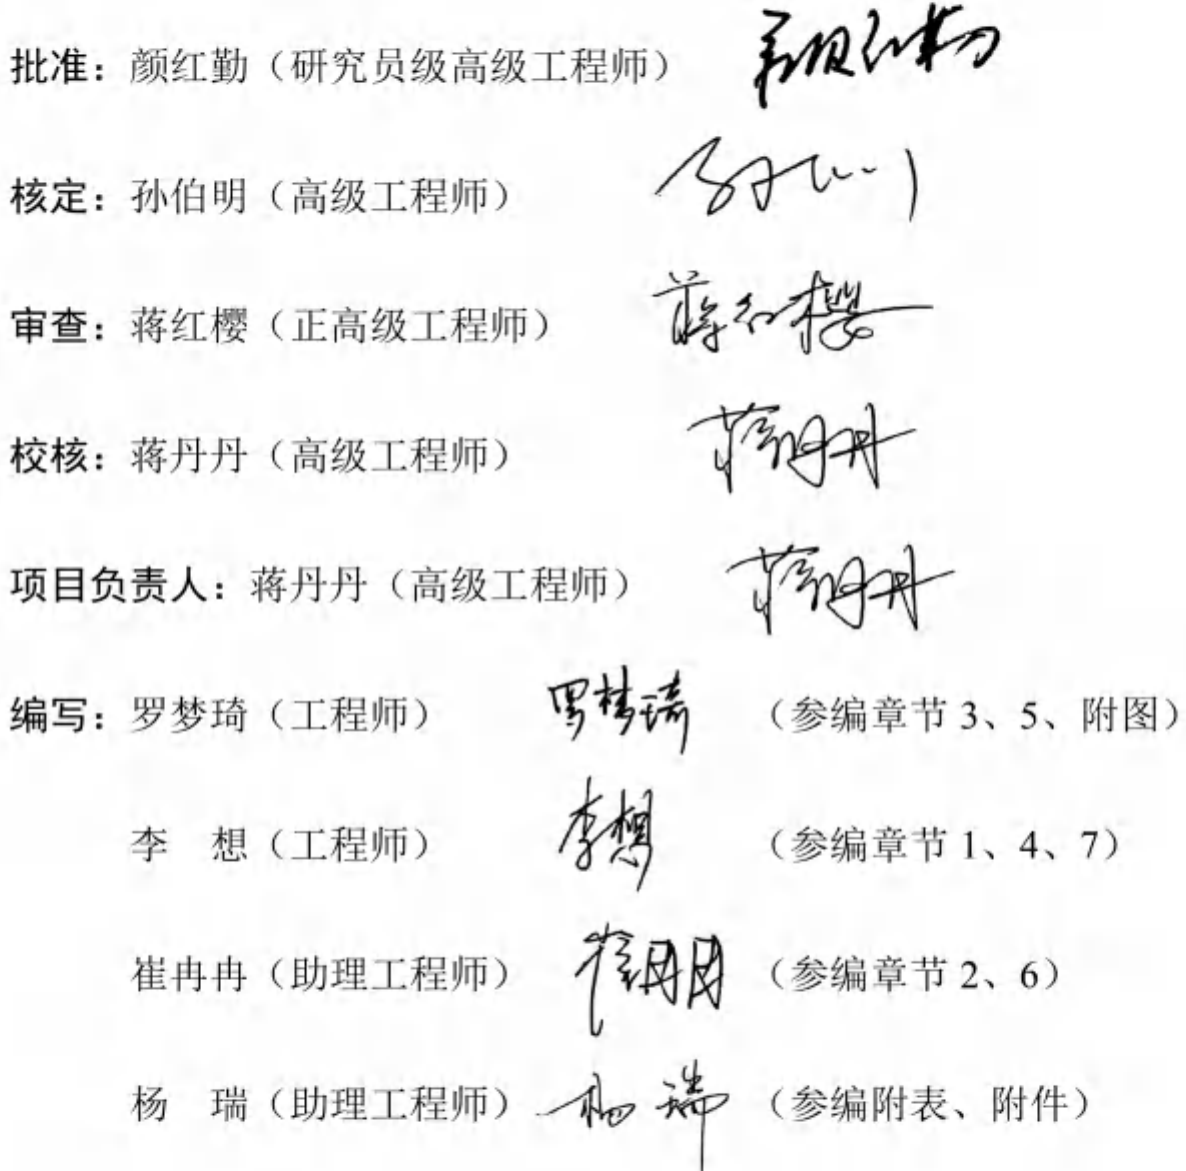 批准：颜红勤（研究员级高级工程师） 颜红勤
核定：孙伯明（高级工程师）
审查：蒋红樱（正高级工程师） 蒋红樱
校核：蒋丹丹（高级工程师） 蒋丹丹
项目负责人：蒋丹丹（高级工程师） 蒋丹丹
编写：罗梦琦（工程师） 罗梦琦 （参编章节 3、5、附图）
李　想（工程师） 李想 （参编章节 1、4、7）
崔冉冉（助理工程师） 崔冉冉 （参编章节 2、6）
杨　瑞（助理工程师） 杨瑞 （参编附表、附件）